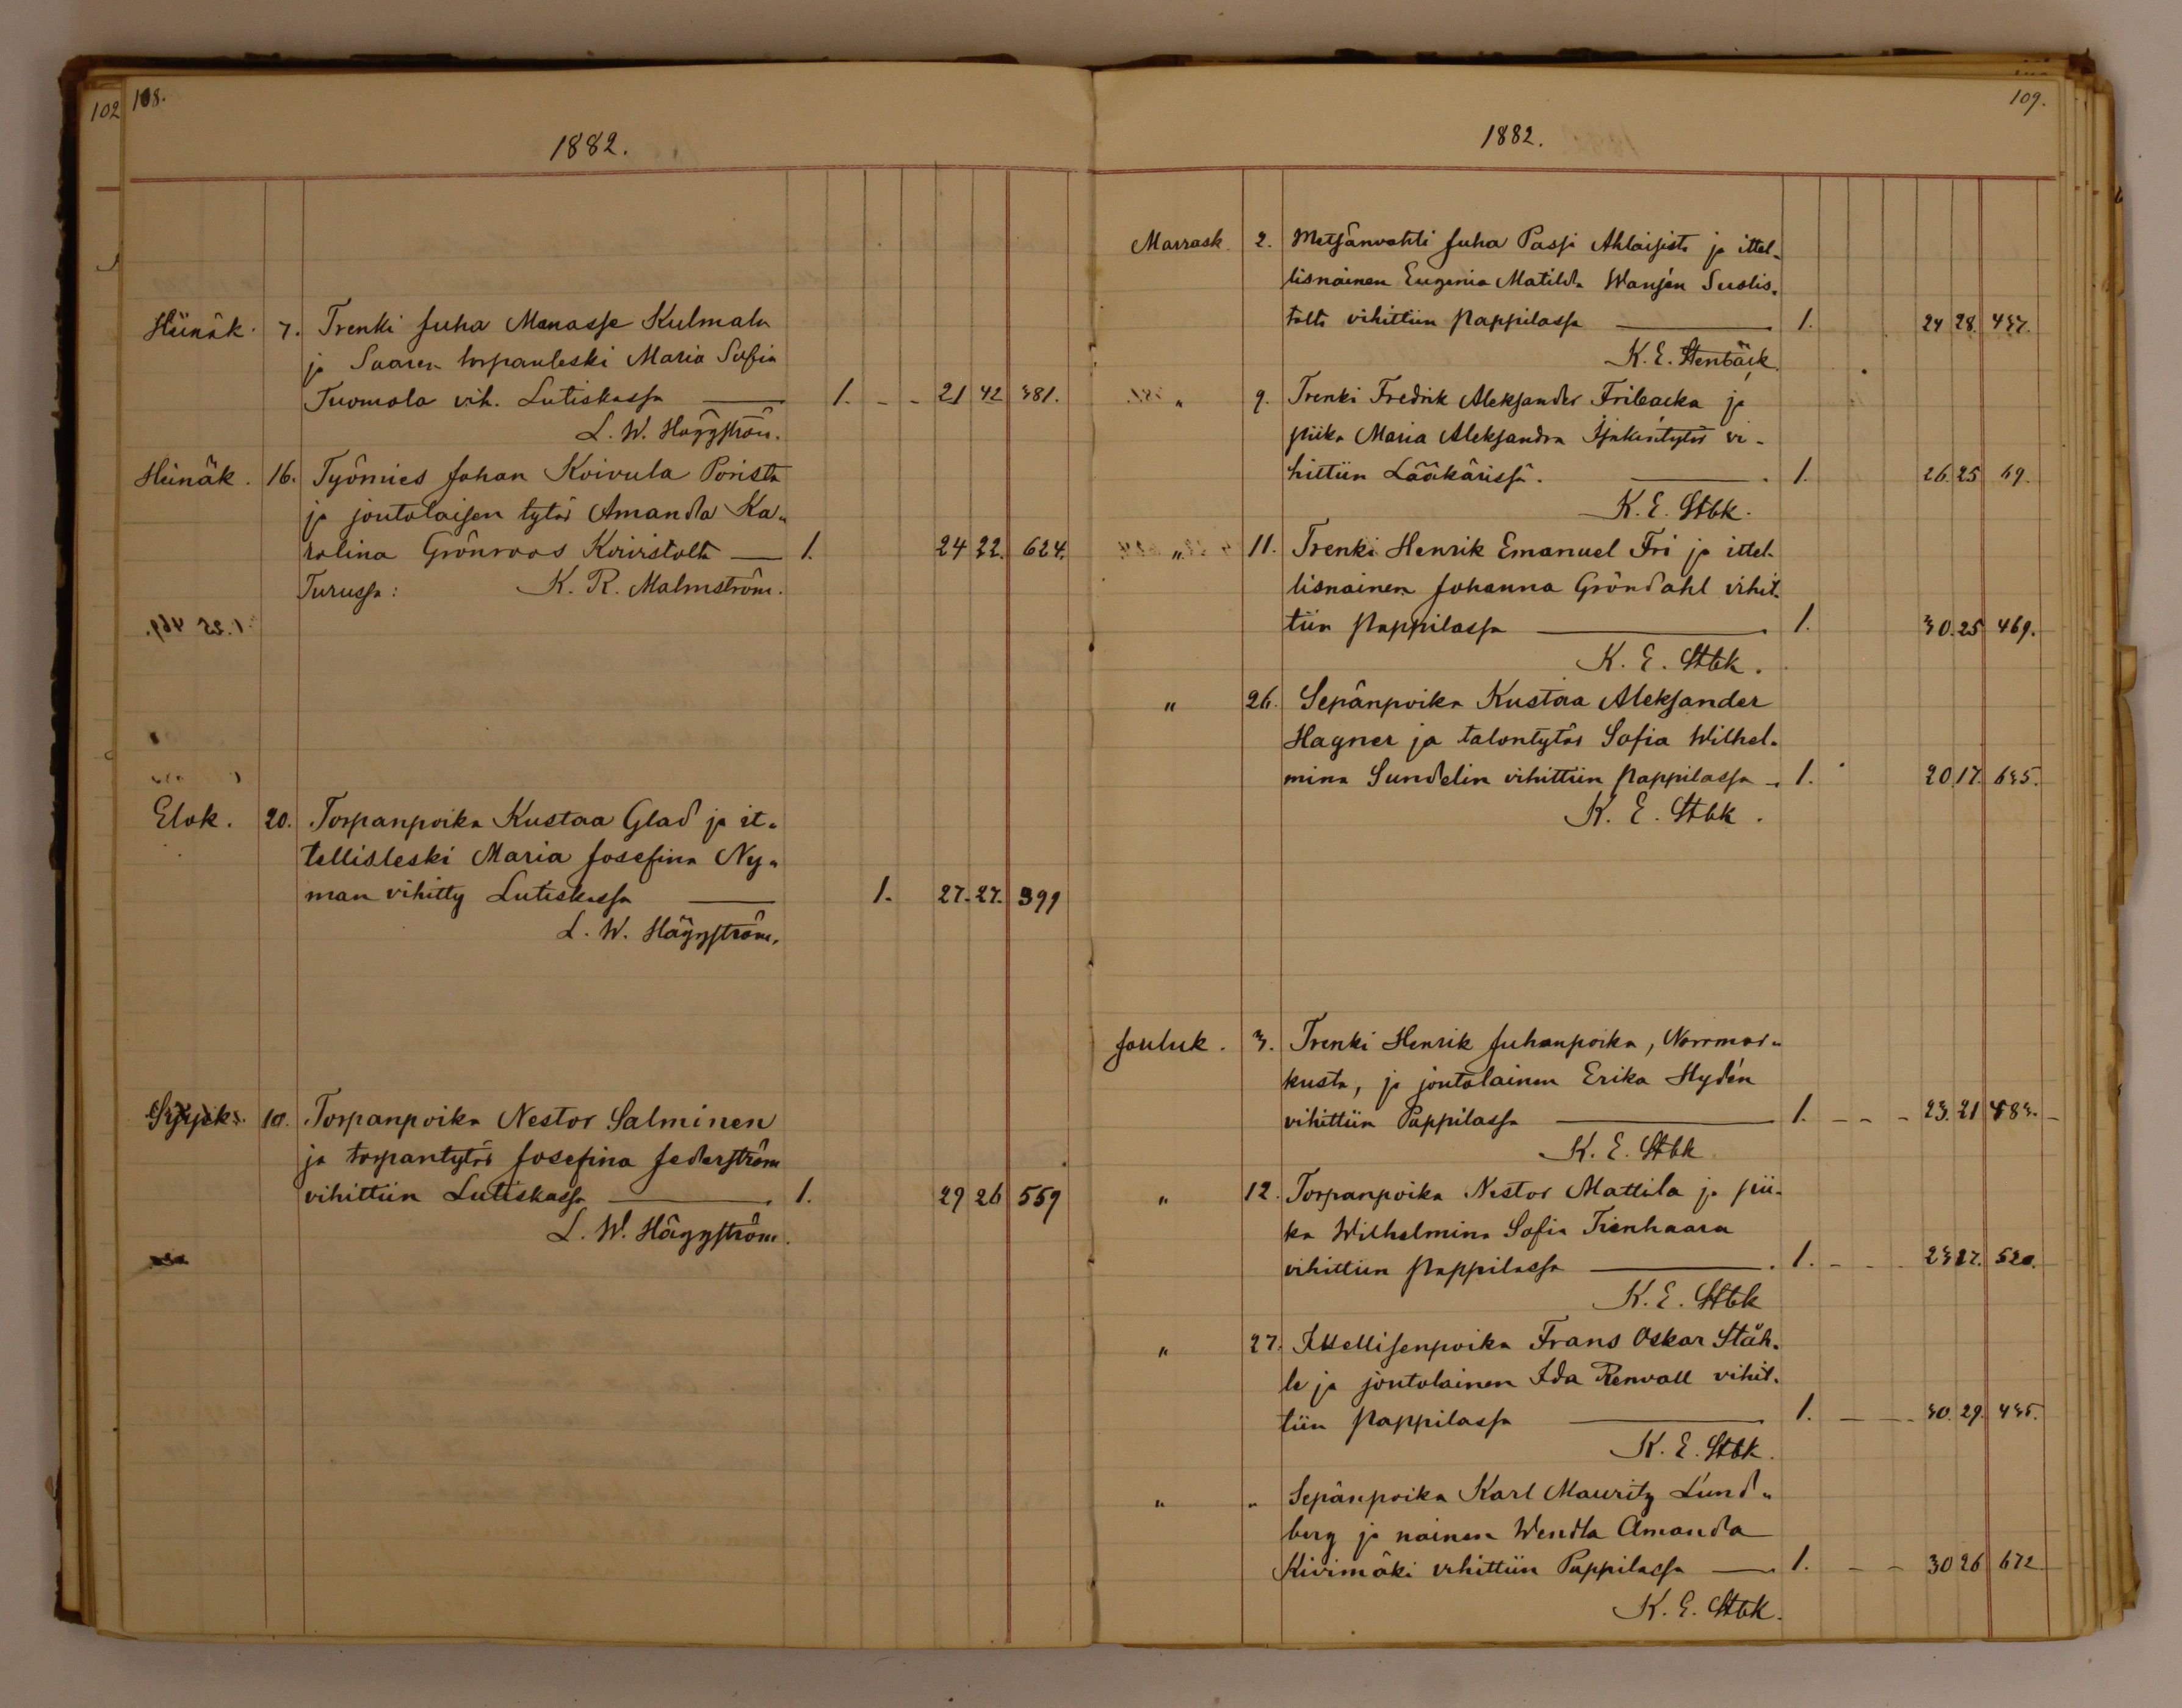 102 108.
1882.
Heinäk. 7. Trenki Juha Manasse Kulmala
ja Saaren torpanleski Maria Sofia
Tuomola vih. Lutiskassa — 1. - - 21 42 381.
L. W. Häggström.
Heinäk. 16. Työmies Johan Koivula Porista
ja joutolaisen tytär Amanda Ka-
rolina Grönroos Koivistolta — 1. 24 22. 624.
Turussa: K. R. Malmström.
Elok. 20. Torpanpoika Kustaa Glad ja it-
tellisleski Maria Josefina Ny-
man vihitty Lutiskassa — 1. 27. 27. 399
L. W. Häggström.
Syysk. 10. Torpanpoika Nestor Salminen
ja torpantytär Josefina Jederström
vihittiin Lutiskassa — 1. 29 26 559
L. W. Häggström.
109.
1882.
Marrask. 2. Metsänvahti Juha Passi Ahlaisista ja ittel-
lisnainen Eugenia Matilda Wansén Suolis-
tolta vihittiin pappilassa — 1. 24 28. 437.
K. E. Stenbäck.
" 9. Trenki Fredrik Aleksander Fribacka ja
piika Maria Aleksandra Isakintytär vi-
hittiin Lääkärissä. — 1. 26. 25 69.
K. E. Stbk.
" 11. Trenki Henrik Emanuel Fri ja ittel-
lisnainen Johanna Gröndahl vihit-
tiin pappilassa — 1. 30. 25 469.
K. E. Stbk.
" 26. Sepänpoika Kustaa Aleksander
Hagner ja talontytär Sofia Wilhel-
mina Sundelin vihittiin pappilassa - 1. 20 17. 635.
K. E. Stbk.
Jouluk. 3. Trenki Henrik Juhanpoika, Norrmar-
kusta, ja joutolainen Erika Hydén
vihittiin Pappilassa — 1. - - - 23. 21 583. -
K. E. Stbk
" 12. Torpanpoika Nestor Mattila ja pii-
ka Wilhelmina Sofia Tienhaara
vihittiin pappilassa — 1. - - 23 27. 520.
K. E. Stbk
" 27. Ittellisenpoika Frans Oskar Ståh-
le ja joutolainen Ida Renvall vihit-
tiin pappilassa — 1. - - - 30. 29. 435.
K. E. Stbk.
" " Sepänpoika Karl Mauritz Lund-
berg ja nainen Wendla Amanda
Kivimäki vihittiin Pappilassa — 1. - - 30 26 672
K. E. Stbk.